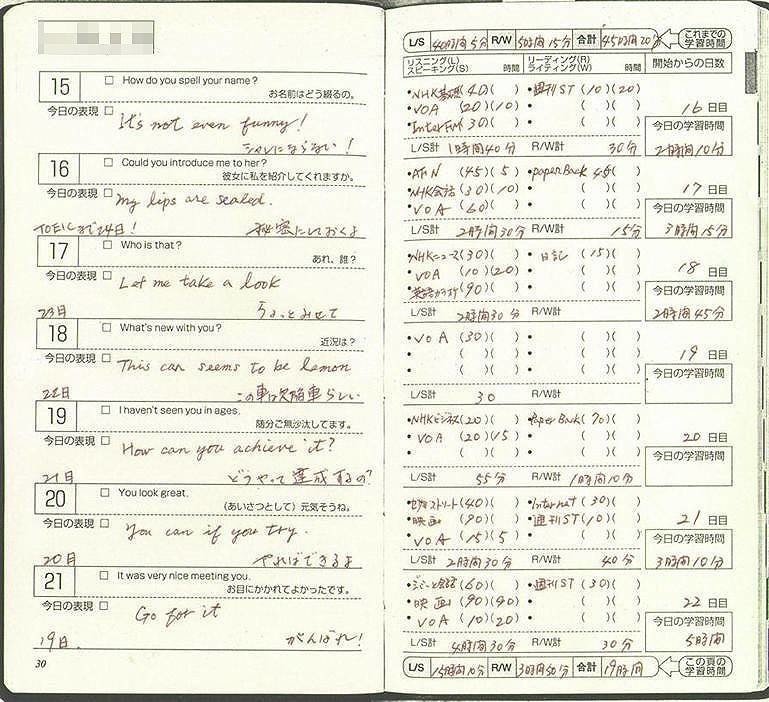 15
□ How do you spell your name?
お名前はどう綴るの。
今日の表現 □ It's not even funny!
シャレにならない!
16
□ Could you introduce me to her?
彼女に私を紹介してくれますか。
今日の表現 □ My lips are sealed.
TOEICまで24日! 秘密にしておくよ
17
□ Who is that?
あれ、誰?
今日の表現 □ Let me take a look
23日 ちょっとみせて
18
□ What's new with you?
近況は?
今日の表現 □ This car seems to be lemon
22日 この車は欠陥車らしい
19
□ I haven't seen you in ages.
随分ご無沙汰してます。
今日の表現 □ How can you achieve it?
21日 どうやって達成するの?
20
□ You look great.
(あいさつとして) 元気そうね。
今日の表現 □ You can if you try.
20日 やればできるよ
21
□ It was very nice meeting you.
お目にかかれてよかったです。
今日の表現 □ Go for it
19日 がんばれ!
30
L/S 40時間5分 R/W 5時間15分 合計 45時間20分 これまでの学習時間
リスニング(L) スピーキング(S) 時間 リーディング(R) ライティング(W) 時間 開始からの日数
•NHK基礎(40)( ) •週刊ST(10)(20)
•VOA (20)(10) • ( )( ) 16日目
•InterFM(30)( ) • ( )( ) 今日の学習時間
L/S計 1時間40分 R/W計 30分 2時間10分
•AFN (45)(5) •paperBack 45( )
•NHK会話(30)(10) • ( )( ) 17日目
•VOA (60)( ) • ( )( ) 今日の学習時間
L/S計 2時間30分 R/W計 15分 3時間15分
•NHKニュース(30)( ) • 日記 (15)( )
•VOA (10)(20) • ( )( ) 18日目
(90)( ) • ( )( ) 今日の学習時間
L/S計 2時間30分 R/W計 2時間45分
•VOA (30)( ) • ( )( )
• ( )( ) • ( )( ) 19日目
• ( )( ) • ( )( ) 今日の学習時間
L/S計 30 R/W計
•NHKビジネス(20)( ) •PaperBack(70)( )
•VOA (20)(15) • ( )( ) 20日目
• ( )( ) • ( )( ) 今日の学習時間
L/S計 55分 R/W計 1時間10分
•セサミストリート(40)( ) •Internet(30)( )
•映画 (90)( ) •週刊ST(10)( ) 21日目
•VOA (15)(5) • ( )( ) 今日の学習時間
L/S計 2時間30分 R/W計 40分 3時間10分
(60)( ) •週刊ST(30)( )
•映画 (90)(90) • ( )( ) 22日目
•VOA (10)(20) • ( )( ) 今日の学習時間
L/S計 4時間30分 R/W計 30分 5時間
L/S 15時間10分 R/W 3時間50分 合計 19時間 この頁の学習時間